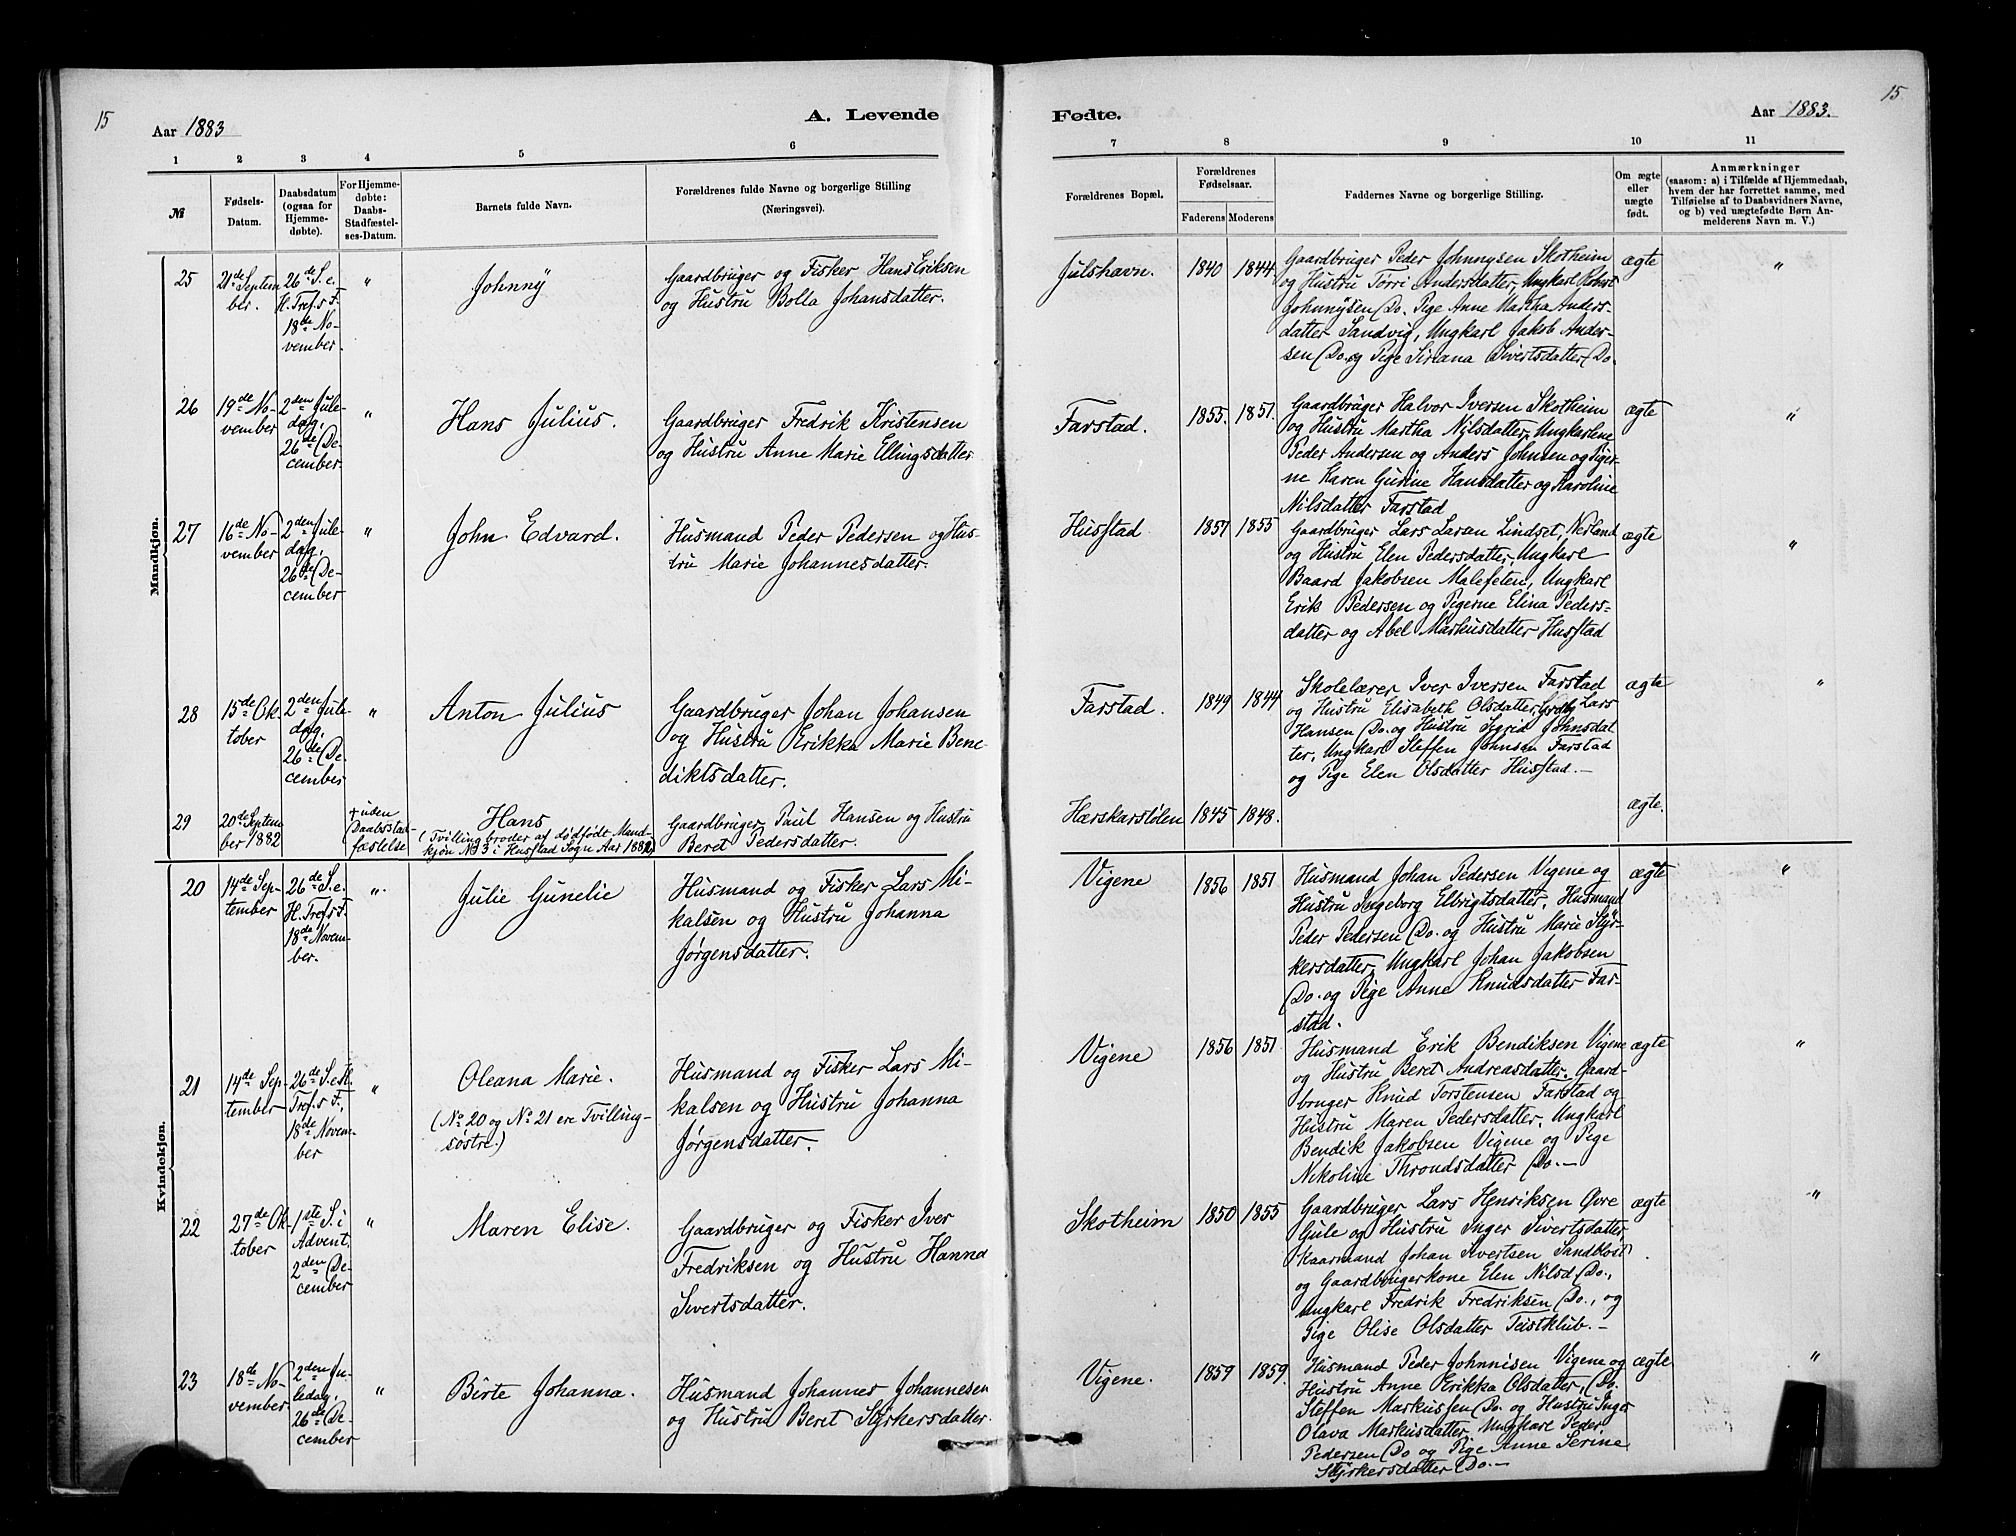 15
Aar 1883
A. Levende
1 2 3 4 5 6
№
Fødsels-Datum.
Daabsdatum (ogsaa for Hjemme-døbte).
For Hjemme-døbte: Daabs-Stadfæstel-ses-Datum.
Barnets fulde Navn.
Forældrenes fulde Navne og borgerlige Stilling (Næringsvei).
Fødte.
Aar 1883.
15
7 8 9 10 11
Forældrenes Bopæl.
Forældrenes Fødselsaar.
Faderens Moderens
Faddernes Navne og borgerlige Stilling.
Om ægte eller uægte født.
Anmærkninger
(saasom: a) i Tilfælde af Hjemmedaab,
hvem der har forrettet samme, med
Tilføielse af to Daabsvidners Navne,
og b) ved uægtefødte Børn An-
melderens Navn m. V.)
Mandkjøn.
25
21de Septem
ber.
26de S. e.
H. Tref. s F.
18de No-
vember.
"
Johnny
Gaardbruger og Fisker Hans Eriksen
og Hustru Bolla Johansdatter.
Julshavn.
1840 1844.
Gaardbruger Peder Johnnysen Skotheim
og Hustru Torri Andersdatter, Ungkarl Robert
Johnnysen Do. Pige Anne Martha Anders-
datter Sandvig, Ungkarl Jakob Ander-
sen Do. og Pige Siriana Sivertsdatter Do.
ægte
"
26
19de No-
vember
2den Jule-
dag,
26de De-
cember.
"
Hans Julius.
Gaardbruger Fredrik Kristensen
og Hustru Anne Marie Ellingsdatter
Farstad.
1855. 1851.
Gaardbruger Halvor Iversen Skotheim
og Hustru Martha Nilsdatter, Ungkarlene
Peder Andersen og Anders Johnsen og Piger-
ne Karen Gurine Hansdatter og Karoline
Nilsdatter Farstad
ægte
"
27
16de No-
vember
2den Jule-
dag,
26de De-
cember
"
John Edvard.
Husmand Peder Pedersen og Hus-
tru Marie Johannesdatter.
Husstad.
1857 1855
Gaardbruger Lars Larsen Lindset, Nerland
og Hustru Elen Pedersdatter, Ungkarl
Baard Jakobsen Malefeten, Ungkarl
Erik Pedersen og Pigerne Elina Peders-
datter og Abel Markusdatter Husstad
ægte
"
28
15de Ok
tober
2den Jule
dag,
26de De-
cember
"
Anton Julius
Gaardbruger Johan Johansen
og Hustru Erikka Marie Bene-
diktsdatter.
Farstad.
1849 1844
Skolelærer Iver Iversen Farstad
og Hustru Elisabeth Olsdatter, Grdbr Lars
Hansen Do. og Hustru Sigrid Johnsdat
ter, Ungkarl Steffen Johnsen Farstad
og Pige Elen Olsdatter Husstad.-
ægte
"
29
20de Septem
ber 1882
† uden
Daabsstad-
fæstelse
Hans
(Tvillingbroder af dødfødt Mand-
kjøn N. 3 i Husstad Sogn Aar 1882)
Gaardbruger Paul Hansen og Hustru
Beret Pedersdatter.
Harskarstølen
1845 1848.
ægte.
Kvindekjøn.
20
14de Sep-
tember
26de S. e.
H. Tref. s F.
18de Novem-
ber.
"
Julie Gunelie
Husmand og Fisker Lars Mi-
kalsen og Hustru Johanna
Jørgensdatter.
Vigene
1856 1851
Husmand Johan Pedersen Vigene og
Hustru Ingeborg Elbrigtsdatter, Husmand
Peder Pedersen Do. og Hustru Marie Styr-
kersdatter, Ungkarl Johan Jakobsen
Do. og Pige Anne Knudsdatter Far-
stad.
ægte
"
21
14de Sep-
tember
26de S. e H.
Tref. s F.,
18de Novem-
ber
"
Oleana Marie.
(No 20 og No 21 ere Tvilling-
søstre.)
Husmand og Fisker Lars Mi-
kalsen og Hustru Johanna
Jørgensdatter.
Vigene
1856 1851
Husmand Erik Bendiksen Vigene
og Hustru Beret Andreasdatter, Gaard-
bruger Knud Torstensen Farstad og
Hustru Maren Pedersdatter, Ungkarl
Bendik Jakobsen Vigene og Pige
Nikoline Throndsdatter Do.-
ægte
"
22
27de Ok-
tober
1ste S. i
Advent,
2den De-
cember
"
Maren Elise.
Gaardbruger og Fisker Iver
Fredriksen og Hustru Hanna
Sivertsdatter.
Skotheim
1850 1855
Gaardbruger Lars Henriksen Øvre
Gule og Hustru Inger Sivertsdatter,
Kaarmand Johan Sivertsen Sandblost
og Gaardbrugerkone Elen Nilsd Do.,
Ungkarl Fredrik Fredriksen Do., og
Pige Olise Olsdatter Teistklub.-
ægte
"
23
18de No-
vember
2den Ju-
ledag,
26de De-
cember
"
Birte Johanna.
Husmand Johannes Johannesen
og Hustru Beret Styrkersdatter.
Vigene.
1859 1859.
Husmand Peder Johnnisen Vigene og
Hustru Anne Erikka Olsdatter, Do.
Steffen Markussen Do. og Hustru Inger
Olava Markusdatter, Ungkarl Peder
Pedersen Do og Pige Anne Serine
Styrkersdatter Do.-
ægte
"